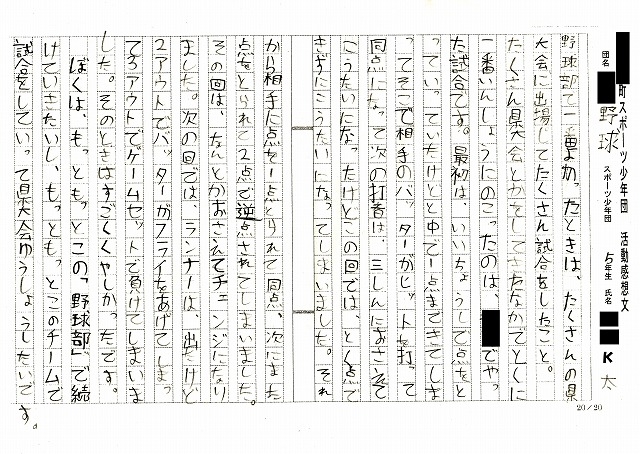 町スポーツ少年団 活動感想文
団名 野球 スポーツ少年団 5年生 氏名 K 太
野球部で一番よかったときは、たくさんの県
大会に出場してたくさん試合をしたこと。
たくさん県大会とかをしてきたなかでとくに
一番いんしょうにのこったのは、 でやっ
た試合です。最初は、いいちょうしで点をと
っていっていたけどと中で一点まできてしま
ってそこで相手のバッターがヒットを打って
同点になって次の打者は、三しんにおさえて
こうたいになったけどこの回では、とく点で
きずにこうたいになってしまいました。それ
から相手に点を一点とられて同点、次にまた
点をとられて2点で逆点されてしまいました。
その回は、なんとかおさえてチェンジになり
ました。次の回では、ランナーは、出たけど
2アウトでバッターがフライをあげてしまっ
て3アウトでゲームセットで負けてしまいま
した。そのときはすごくくやしかったです。
ぼくは、もっともっとこの「野球部」で続
けていきたいし、もっともっとこのチームで
試合をしていって県大会ゆうしょうしたいです。
20/20